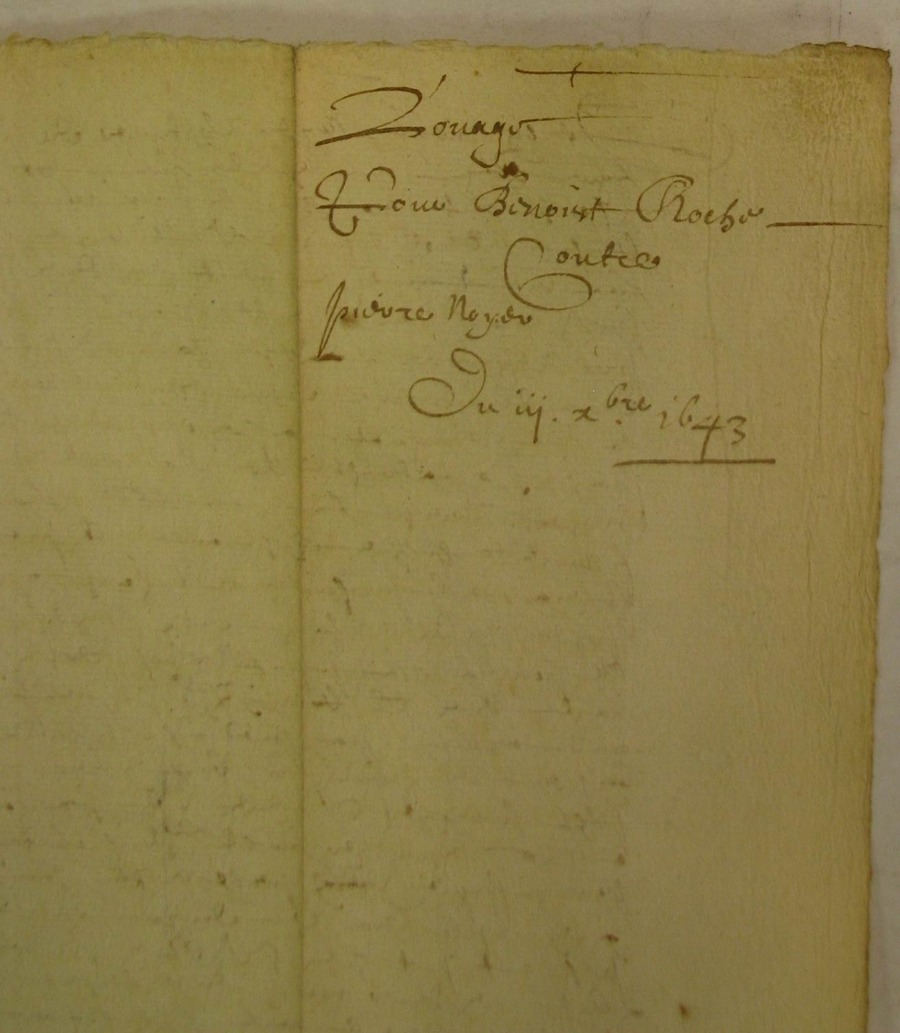 Louage
Pour Benoist Roche
Contre
pierre Noyer
Du iij. xbre 1643